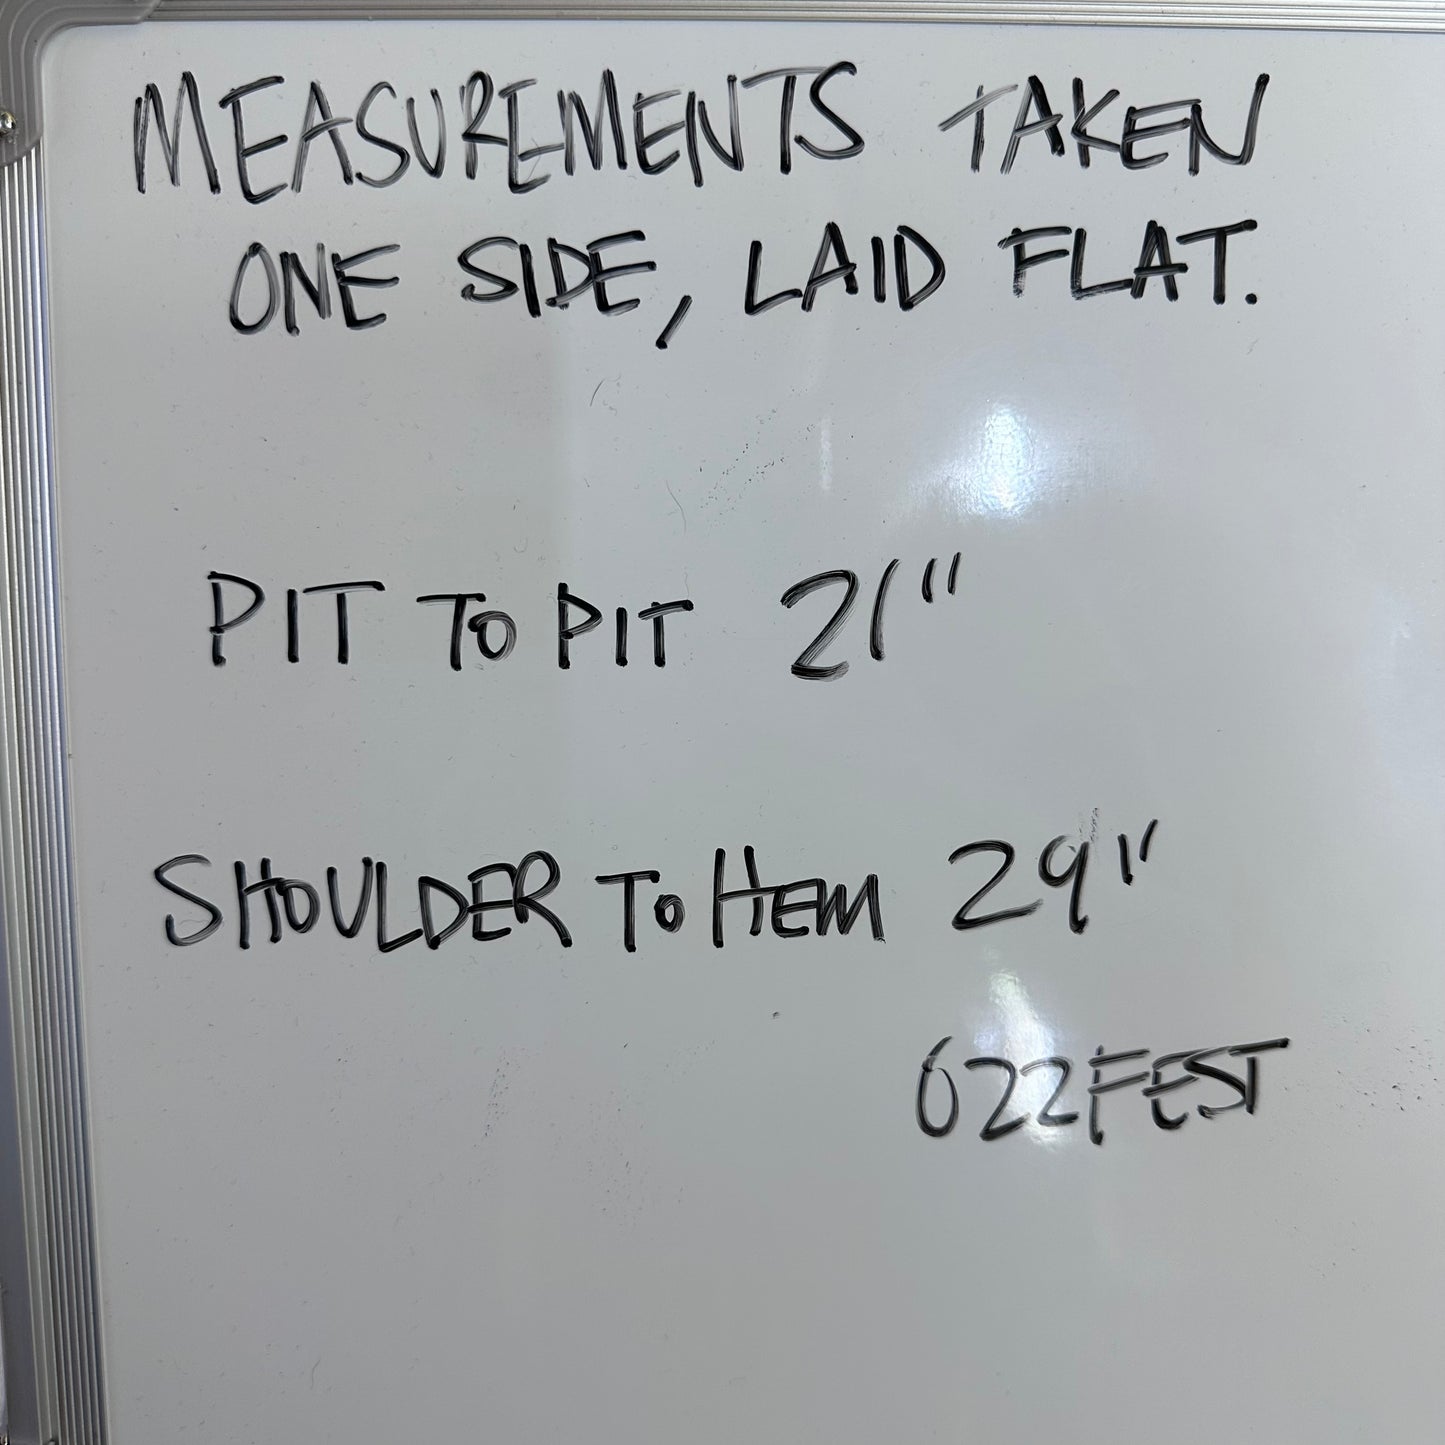 MEASUREMENTS TAKEN
ONE SIDE, LAID FLAT.
PIT TO PIT 21"
SHOULDER TO HEM 29"
022FEST